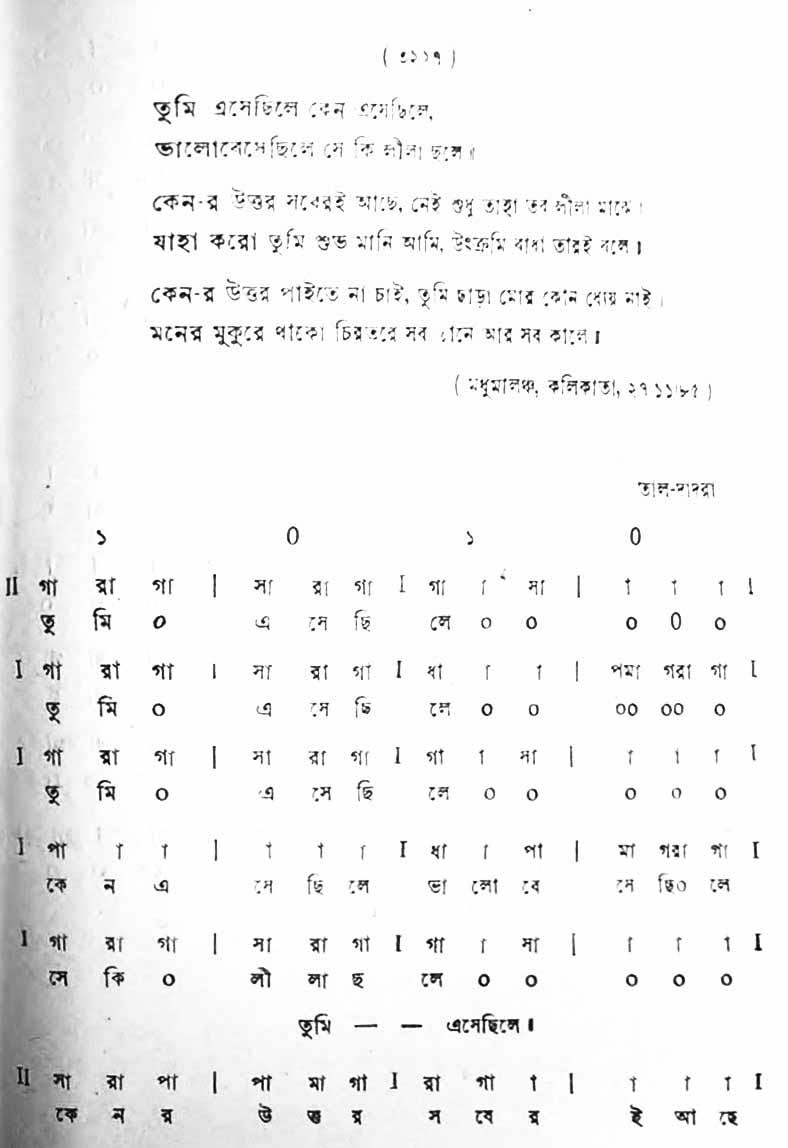 ( ৩১১৭ )
তুমি এসেছিলে কেন এসেছিলে,
ভালোবেসেছিলে সে কি লীলা ছলে॥
কেন-র উত্তর সবেরই আছে, নেই শুধু তাহা তব লীলা মাঝে।
যাহা করো তুমি শুভ মানি আমি, উৎক্রমি বাধা তারই বলে॥
কেন-র উত্তর পাইতে না চাই, তুমি ছাড়া মোর কোন ধ্যেয় নাই।
মনের মুকুরে থাকো চিরতরে সব স্থানে আর সব কালে॥
( মধুমালঞ্চ, কলিকাতা, ২৭।১১।৮৫ )
তাল-দাদরা
১ 0 ১ 0
II গা রা গা | সা রা গা I গা া সা | া া া I
তু মি o এ সে ছি লে o o o 0 o
I গা রা গা । সা রা গা I ধা া া | পমা গরা গা I
তু মি o এ সে ছি লে o o oo oo o
I গা রা গা | সা রা গা I গা া সা | া া া I
তু মি o এ সে ছি লে o o o o o
I পা া া | া া া I ধা া পা | মা গরা গা I
কে ন এ সে ছি লে ভা লো বে সে ছিo লে
I গা রা গা | সা রা গা I গা া সা | া া া I
সে কি o লী লা ছ লে o o o o o
তুমি — — এসেছিলে॥
II সা রা পা | পা মা গা I রা গা া | া া া I
কে ন র উ ত্ত র স বে র ই আ ছে